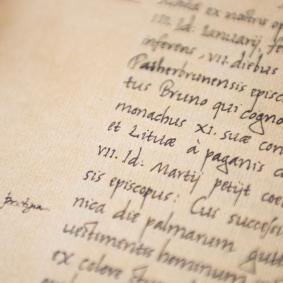 ex nostris op
III. Id. Ianuarij, fe
inferens, VII. diebus
Patherbrunensis episc
tus Bruno qui cogno
monachus XI. suæ con
et Lituæ à paganis c
VII. Id: Martij petijt coe
sis episcopus: Cus successi
nica die palmarum gut
uestimentis hominum
ex colere